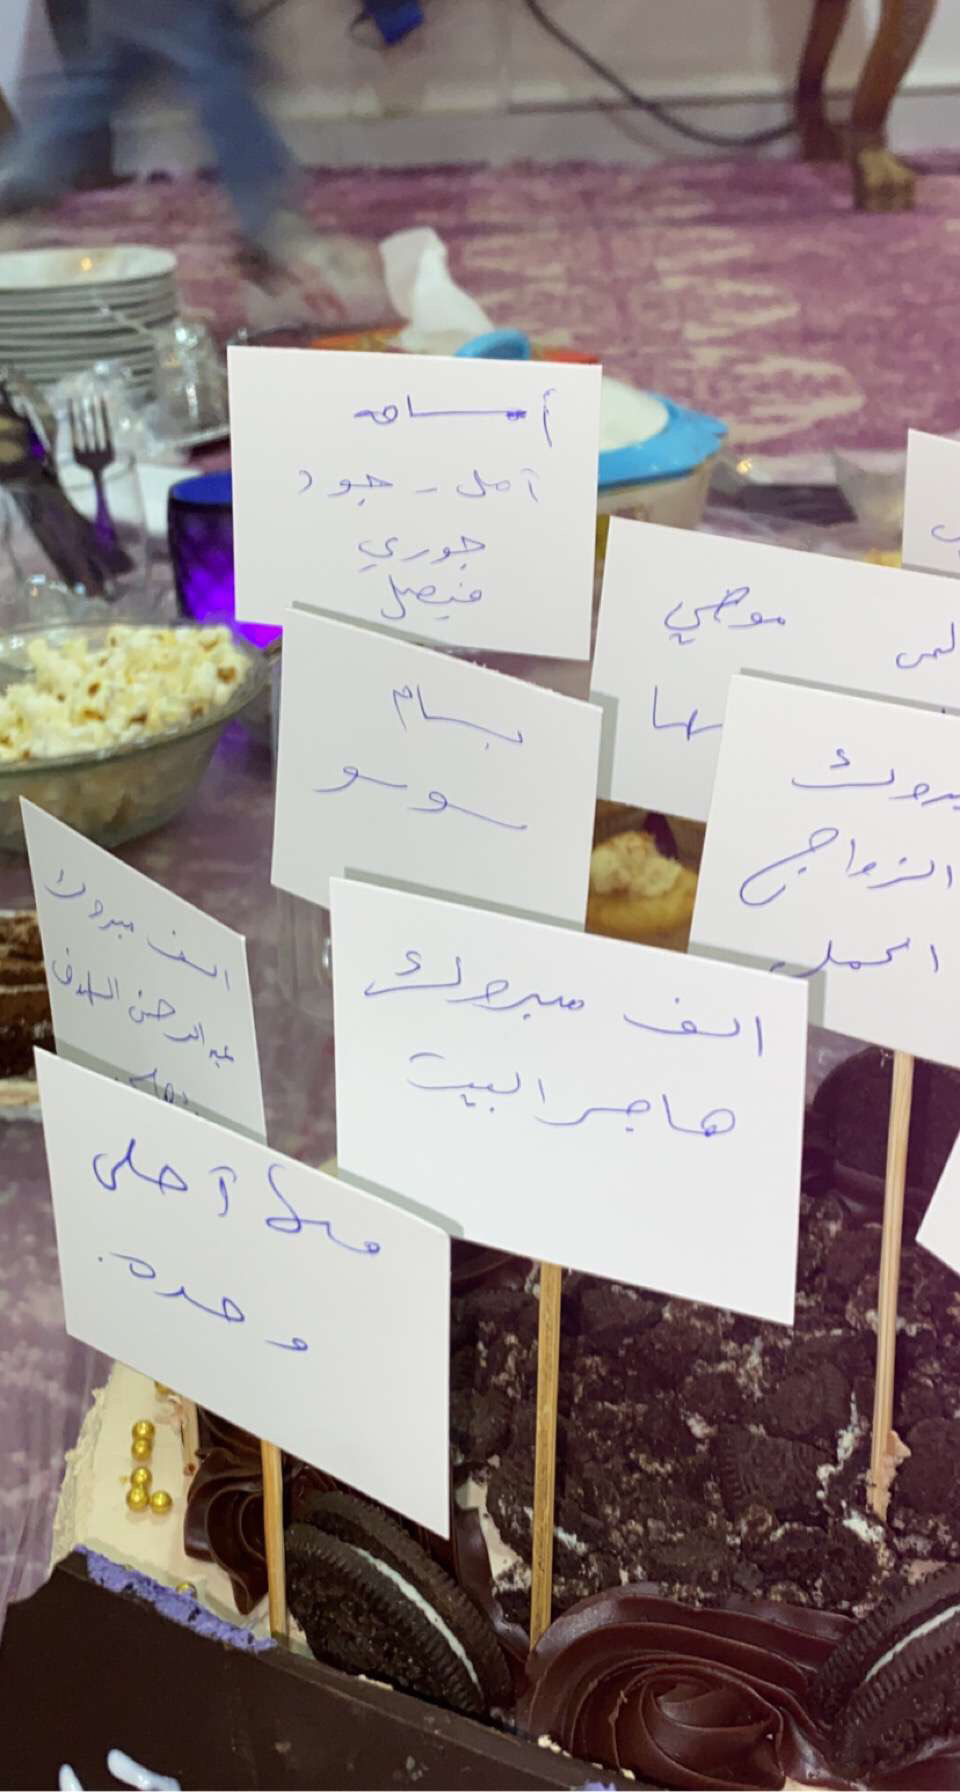 أسامه
آمل - جود
جوري
فيصل
موضي
لمى
مها
بسام
سوسو
مبروك
الزواج
الحمل
الف مبروك
عبدالرحمن الهدف
الف مبروك
هاجر البيت
ملا آحلى
وحده.